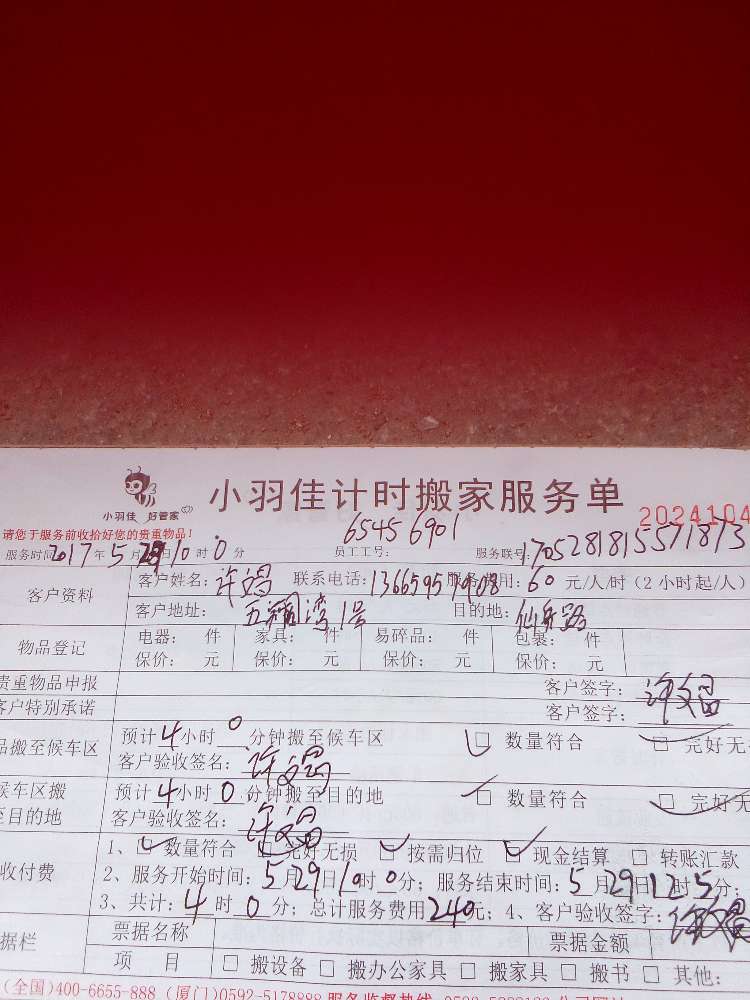 小羽佳 好管家
小羽佳计时搬家服务单
2024104
请您于服务前收拾好您的贵重物品!
6545 6901
服务时间 2017 年 5 月 29 日 10 时 0 分 员工工号: 服务联号: 1705281815571873
客户资料
客户姓名: 许 联系电话: 服务费用: 60 元/人/时 (2小时起/人)
客户地址: 五 湾1号 目的地: 仙岳路
物品登记
电器: 件 家具: 件 易碎品: 件 包裹: 件
保价: 元 保价: 元 保价: 元 保价: 元
贵重物品申报 客户签字: 许文昌
客户特别承诺 客户签字:
品搬至候车区
预计 4 小时 0 分钟搬至候车区 □ 数量符合 □ 完好无
客户验收签名: 许文昌
候车区搬
至目的地
预计 4 小时 0 分钟搬至目的地 □ 数量符合 □ 完好无
客户验收签名: 许文昌
收付费
1、□ 数量符合 □ 完好无损 □ 按需归位 □ 现金结算 □ 转账汇款
2、服务开始时间: 5 月 29 日 10 时 0 分; 服务结束时间: 5 月 29 日 12 时 5 分;
3、共计: 4 时 0 分; 总计服务费用 240 元; 4、客户验收签字: 许文昌
据栏
票据名称 票据金额
项 目 □ 搬设备 □ 搬办公家具 □ 搬家具 □ 搬书 □ 其他:
(全国)400-6655-888 (厦门)0592-5178888 服务监督热线